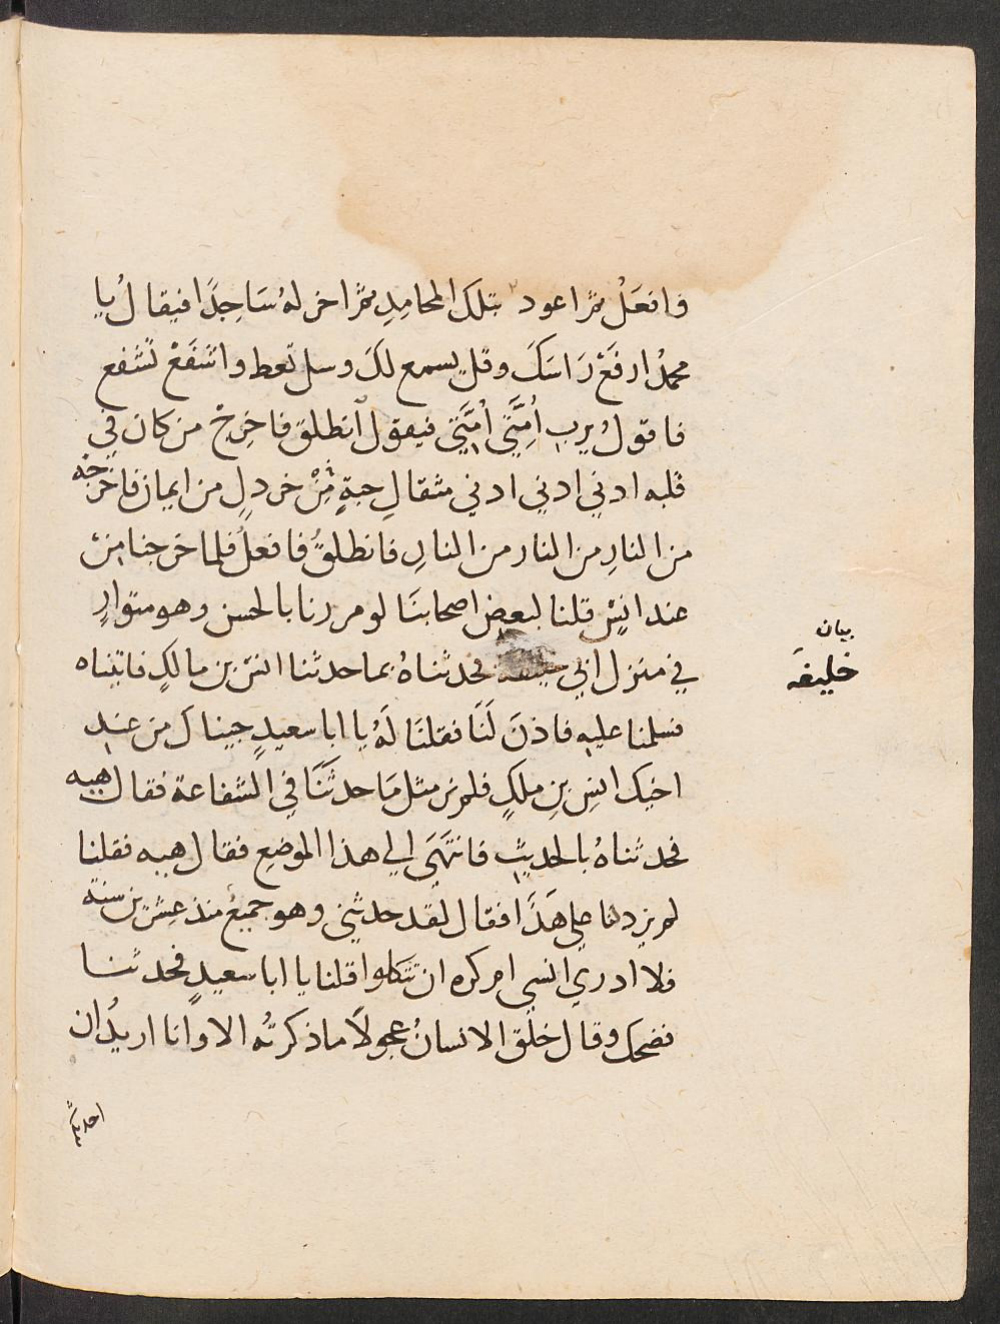 وافعَلْ ثمّ اعود بتلك المحامِدِ ثمّ اخر لهُ سَاجِدًا فيقالُ يا
محمدُ ارفَعْ رَاسَكَ وقل يسمع لكَ وسل تعط واشفَعْ تشفع
فاقولُ يرب اُمَّتي اُمَّتي فيقول اَنطلق فاخرِجْ من كان في
قلبه ادني ادني ادني مثقالِ حبةٍ مِّنْ خردلٍ من ايمان فاخرجه
من النارِ من النار من النارِ فانطلقُ فافعلُ فلما خرجنا من
عند انسٍ قلنا لبعض اصحابنَا لو مررنا بالحسن وهو متوارٍ
في منزل ابي خليفة فحدثناهُ بما حدثنا انس بن مالكٍ فاتيناه
فسلمنا عليه فاذنَ لَنَا فقلنَا لَهُ يا ابا سعيدٍ جيناكَ من عند
اخيك انسِ بن ملكٍ فلم نر مثل مَا حدثَنَا في الشفاعة فقال هيه
فحدثناهُ بالحديث فانتَهَى الي هذا الموضع فقال هيه فقلنا
لم يزدنا علي هَذَا فقال لقد حدثني وهو جميعٌ منذ عشرين سنة
فلا ادري انسي ام كره ان تتكلوا قلنا يا ابا سعيدٍ فحدثنا
فضحك وقال خلق الانسانُ عجولاً ما ذكرتُه الا وانا اريدُ ان
احدثكم
بيان
خليفَه